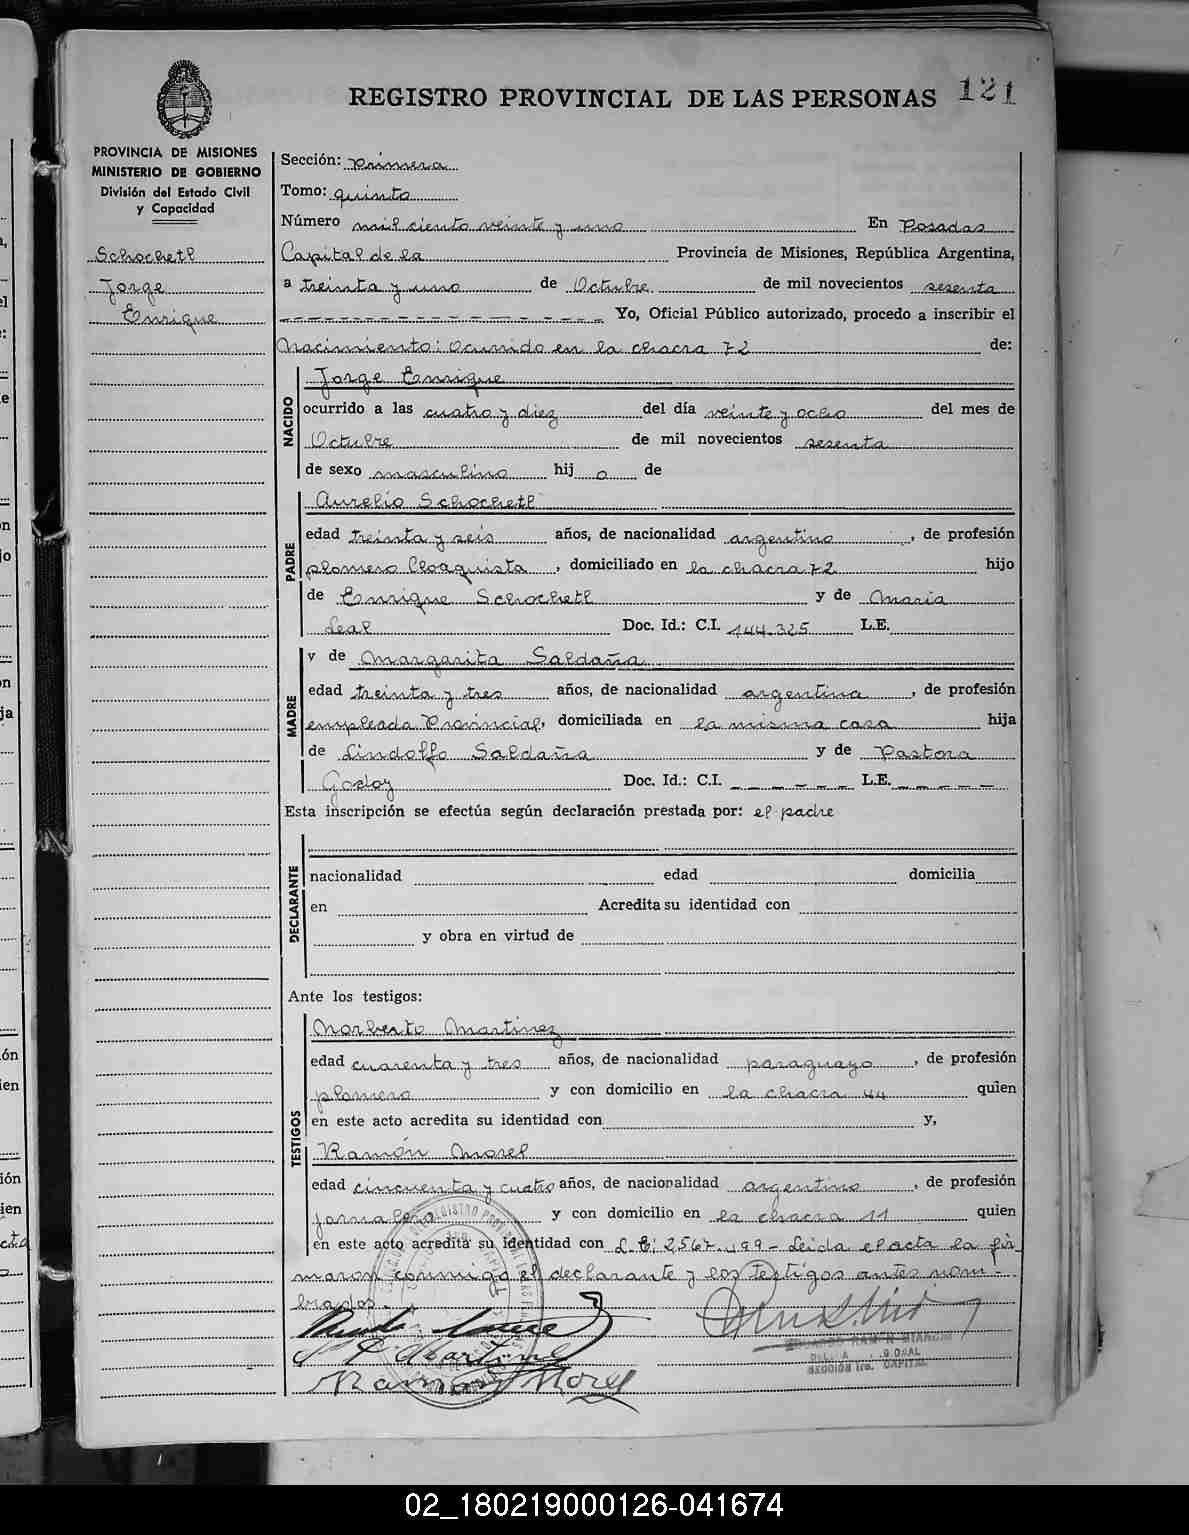 REGISTRO PROVINCIAL DE LAS PERSONAS 121
PROVINCIA DE MISIONES
MINISTERIO DE GOBIERNO
División del Estado Civil
y Capacidad
Schochetl
Jorge
Enrique
Sección: Primera
Tomo: quinto
Número mil ciento veinte y uno En Posadas
Capital de la Provincia de Misiones, República Argentina,
a treinta y uno de Octubre de mil novecientos sesenta
Yo, Oficial Público autorizado, procedo a inscribir el
Nacimiento: Ocurrido en la chacra 72 de:
NACIDO
Jorge Enrique
ocurrido a las cuatro y diez del día veinte y ocho del mes de
Octubre de mil novecientos sesenta
de sexo masculino hijo de
PADRE
Aurelio Schochetl
edad treinta y seis años, de nacionalidad argentino, de profesión
plomero Cloaquista, domiciliado en la chacra 72 hijo
de Enrique Schochetl y de Maria
Leal Doc. Id.: C.I. 144.325 L.E.
MADRE
y de Margarita Saldaña
edad treinta y tres años, de nacionalidad argentina, de profesión
empleada Provincial, domiciliada en la misma casa hija
de Lindolfo Saldaña y de Pastora
Godoy Doc. Id.: C.I. L.E.
Esta inscripción se efectúa según declaración prestada por: el padre
DECLARANTE
nacionalidad edad domicilia
en Acredita su identidad con
y obra en virtud de
Ante los testigos:
TESTIGOS
Norberto Martinez
edad cuarenta y tres años, de nacionalidad paraguayo, de profesión
plomero y con domicilio en la chacra 44 quien
en este acto acredita su identidad con y,
Ramón Morel
edad cincuenta y cuatro años, de nacionalidad argentino, de profesión
jornalero y con domicilio en la chacra 11 quien
en este acto acredita su identidad con L.E: 2567.199 - Leida el acta la fir
maron conmigo el declarante y los testigos antes nom-
brados.-
Martinez
Ramon Morel
SECCION 1ra. CAPITAL
02_180219000126-041674